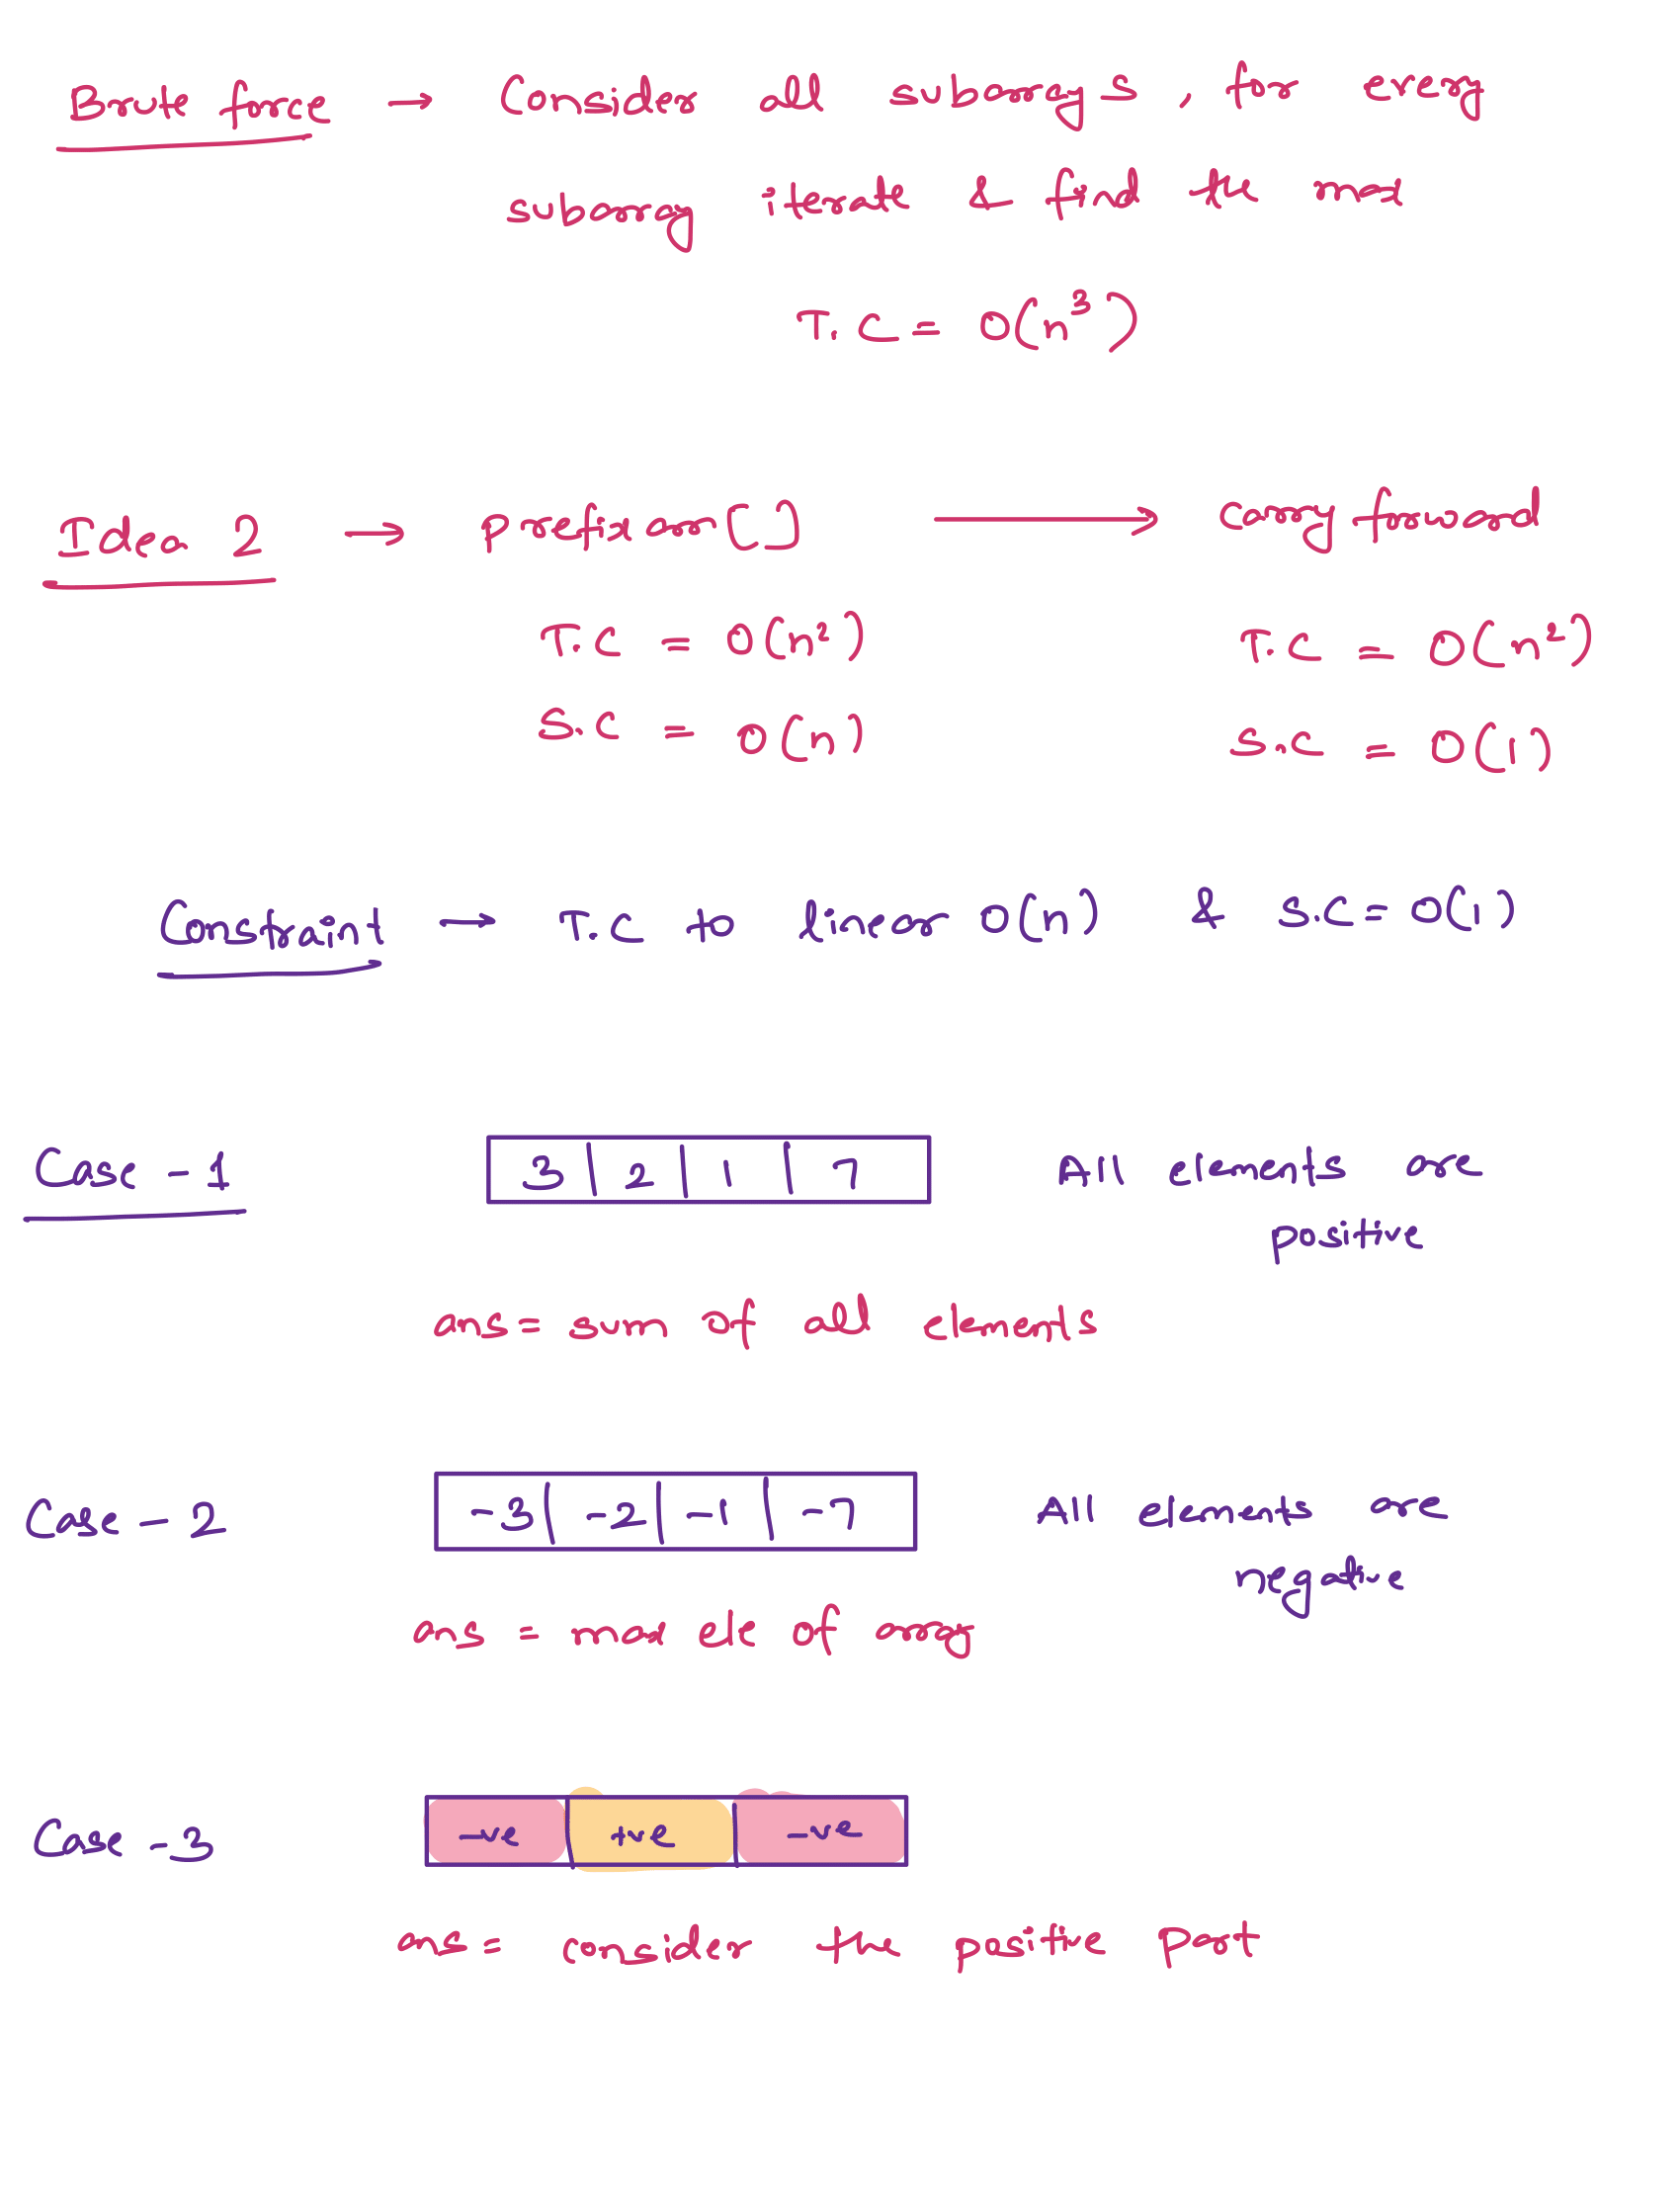 Brute force → Consider all subarrays, for every
subarray iterate & find the max
T.C = O(n³)
Idea 2 → Prefix arr[] → carry forward
T.C = O(n²) T.C = O(n²)
S.C = O(n) S.C = O(1)
Constraint → T.C to linear O(n) & S.C = O(1)
Case - 1 3 | 2 | 1 | 7 All elements are
positive
ans = sum of all elements
Case - 2 -3 | -2 | -1 | -7 All elements are
negative
ans = max ele of array
Case - 3 -ve +ve -ve
ans = consider the positive part